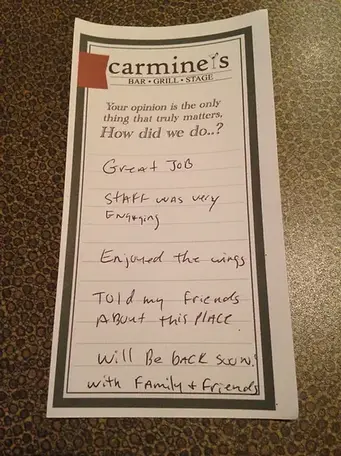 carmine's
BAR • GRILL • STAGE
Your opinion is the only
thing that truly matters,
How did we do..?
Great JOB
STAFF was very
Engaging
Enjoyed the wings
Told my friends
About this PLACE.
Will Be back soon!
with Family + Friends